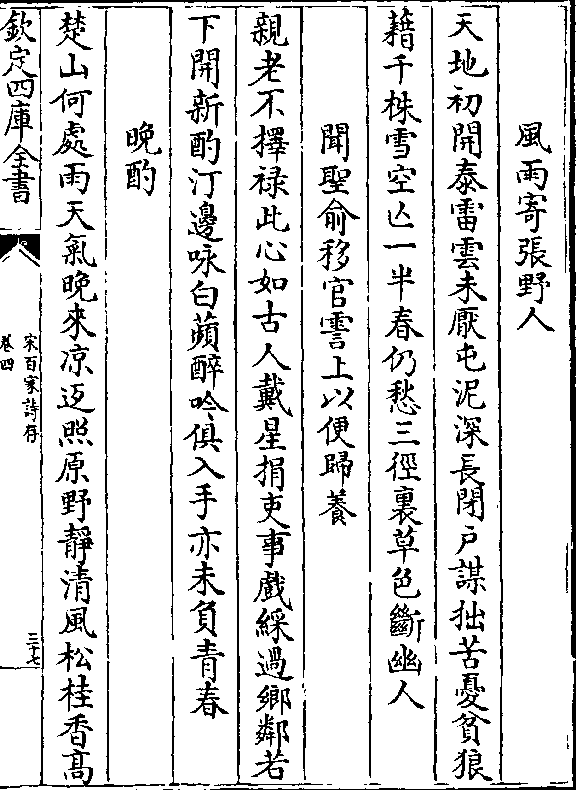 風雨寄張野人
天地初開泰雷雲未厭屯泥深長閉户謀拙苦憂貧狼
藉千株雪空亾一半春仍愁三徑裏草色斷幽人
聞聖俞移官霅上以便歸養
親老不擇禄此心如古人戴星捐吏事戲綵過鄉鄰若
下開新酌汀邊咏白蘋醉吟俱入手亦未負青春
晚酌
楚山何處雨天氣晚來凉返照原野靜清風松桂香髙
欽定四庫全書
宋百家詩存
卷四
三十七